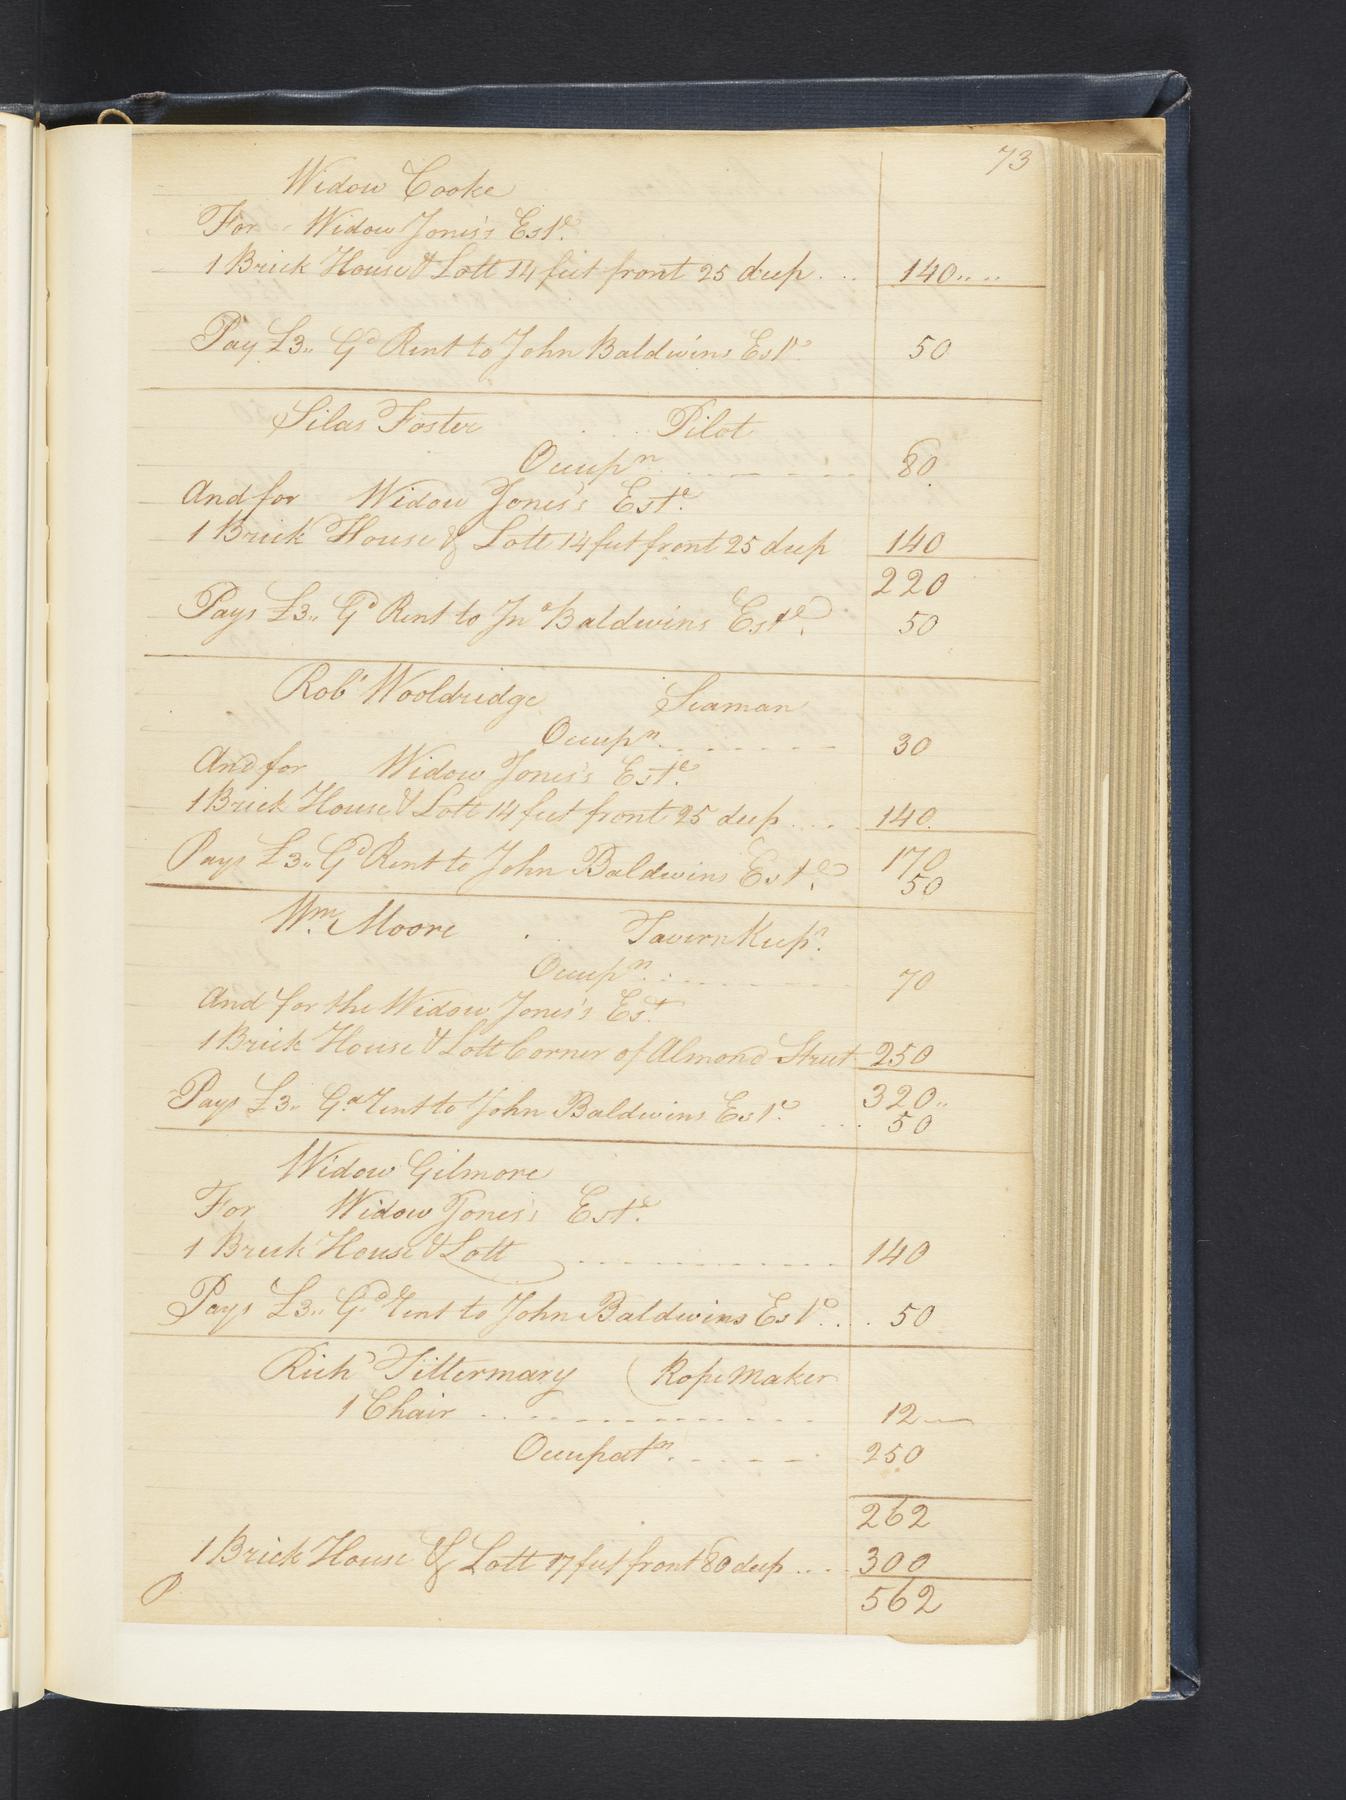 73
Widow Cooke
For Widow Jones's Est.e
1 Brick House & Lott 14 feet front 25 deep .... 140 .. ..
Pay £3.. Gd Rent to John Baldwins Est.e 50
Silas Foster Pilot
Occupn. 80
And for Widow Jones's Est.e
1 Brick House & Lott 14 feet front 25 deep 140
220
Pays £3.. Gd Rent to Jno Baldwins Est.e 50
Robt Wooldridge Seaman
Occupn. 30
And for Widow Jones's Est.e
1 Brick House & Lott 14 feet front 25 deep .... 140
170
Pays £3.. Gd Rent to John Baldwins Est.e 50
Wm. Moore Tavern Keepr.
Occupn. 70
And for the Widow Jones's Est.
1 Brick House & Lott Corner of Almond Street 250
320..
Pays £3.. Gd. Rent to John Baldwins Est.e ... 50
Widow Gilmore
For Widow Jones's Est.e
1 Brick House & Lott 140
Pays £3.. Gd Rent to John Baldwins Est.e .. 50
Richd Tittermary (Rope Maker
1 Chair 12
Occupatn. 250
262
1 Brick House & Lott 17 feet front 80 deep .... 300
P 562